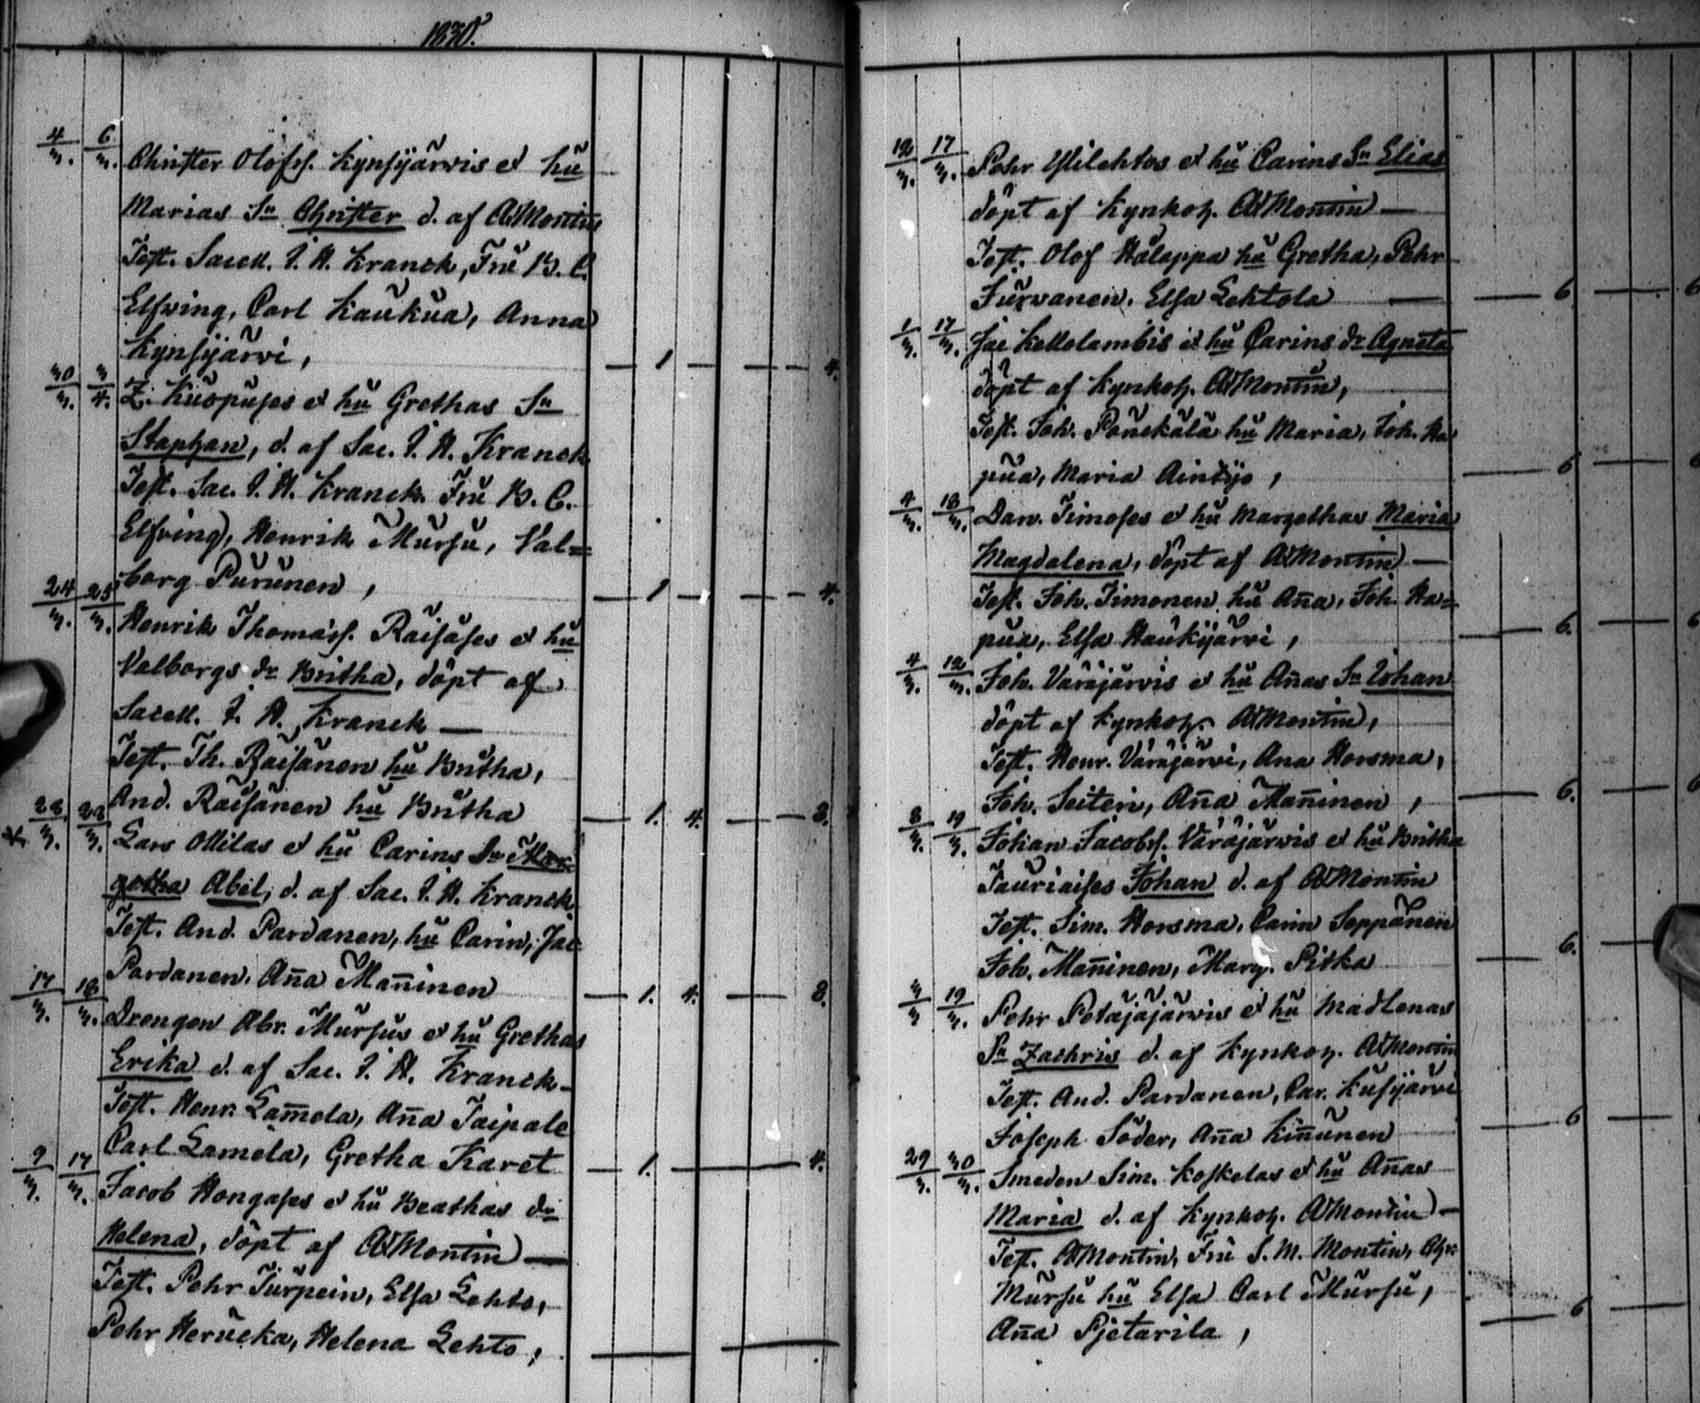 1830.
4/3. 6/3. Christer Olofss. Kynsijärvis et hu
Marias Sn Christer d. af AMontin
Test. Sacell. I. H. Kranck, Fru B. C.
Elfving, Carl Kaukua, Anna
Kynsijärvi, — 1 — — 4.
30/3. 3/4. Z. Kuopuses et hu Grethas Sn
Staphan, d. af Sac. I. H. Kranck
Test. Sac. I. H. Kranck. Fru B. C.
Elfving, Henrik Mursu, Val=
borg Purunen, — 1 — — 4.
24/3. 25/3. Henrik Thomass. Raisases et hu
Valborgs dr Britha, döpt af
Sacell. I. H. Kranck —
Test. Th. Raisänen hu Britha,
And. Raisänen hu Britha — 1. 4. — 8.
28/3. 28/3. Lars Ollilas et hu Carins Dr Mar
getha Abel, d. af Sac. I. H. Kranck
Test. And. Pardanen, hu Carin, Jac
Pardanen, Aña Mañinen — 1. 4. — 8.
17/3. 18/3. Drengen Abr. Mursus et hu Grethas
Erika d. af Sac. I. H. Kranck —
Test. Henr. Lam̄ela, Aña Taipale
Carl Lamela, Gretha Karet — 1. — 4.
9/3. 17/3. Jacob Hongases et hu Beathas dr
Helena, döpt af AMontin —
Test. Pehr Turpein, Elsa Lehto,
Pehr Herucka, Helena Lehto,
12/3. 17/3. Pehr Ylilehtos et hu Carins Sn Elias
döpt af Kynkoh. AMontin —
Test. Olof Hälappa hu Gretha, Pehr
Turvanen. Elsa Lehtola — 6 — 6
1/3. 17/3. Jac Kellolambis et hu Carins dr Agneta
döpt af Kynkoh. AMontin,
Test. Joh. Pouckala hu Maria, Joh. Ha
pua, Maria — 6 — 6
4/3. 18/3. Dav. Timoses et hu Margethas Maria
Magdalena, döpt af AMontin —
Test. Joh. Timonen hu Aña, Joh. Ha=
pua, Elsa Haukijärvi, — 6. — 6
4/3. 12/3. Joh. Väräjärvis et hu Añas Sn Johan
döpt af Kynkoh. AMontin,
Test. Henr. Väräjärvi, Ana Horsma,
Joh. Seiteri, Aña Mañinen, — 6. — 6
8/3. 19/3. Johan Jacobss. Väräjärvis et hu Britha
Tauriaises Johan d. af AMontin
Test. Sim. Horsma, Carin Seppänen
Joh. Mañinen, Marg. Pitka — 6. —
3/3 19/3. Pehr Petäjäjärvis et hu Madlenas
Sn Zachris d. af Kynkoh. AMontin
Test. And. Pardanen, Car. Kusijärvi
Joseph Söder, Aña Kiñunen — 6 —
29/3. 30/3. Smeden Sim. Koskelas et hu Añas
Maria d. af Kynkoh. AMontin —
Test. AMontin, Fru S. M. Montin, Chr.
Mursu hu Elsa Carl Mursu,
Aña Pjetarila, — 6 —